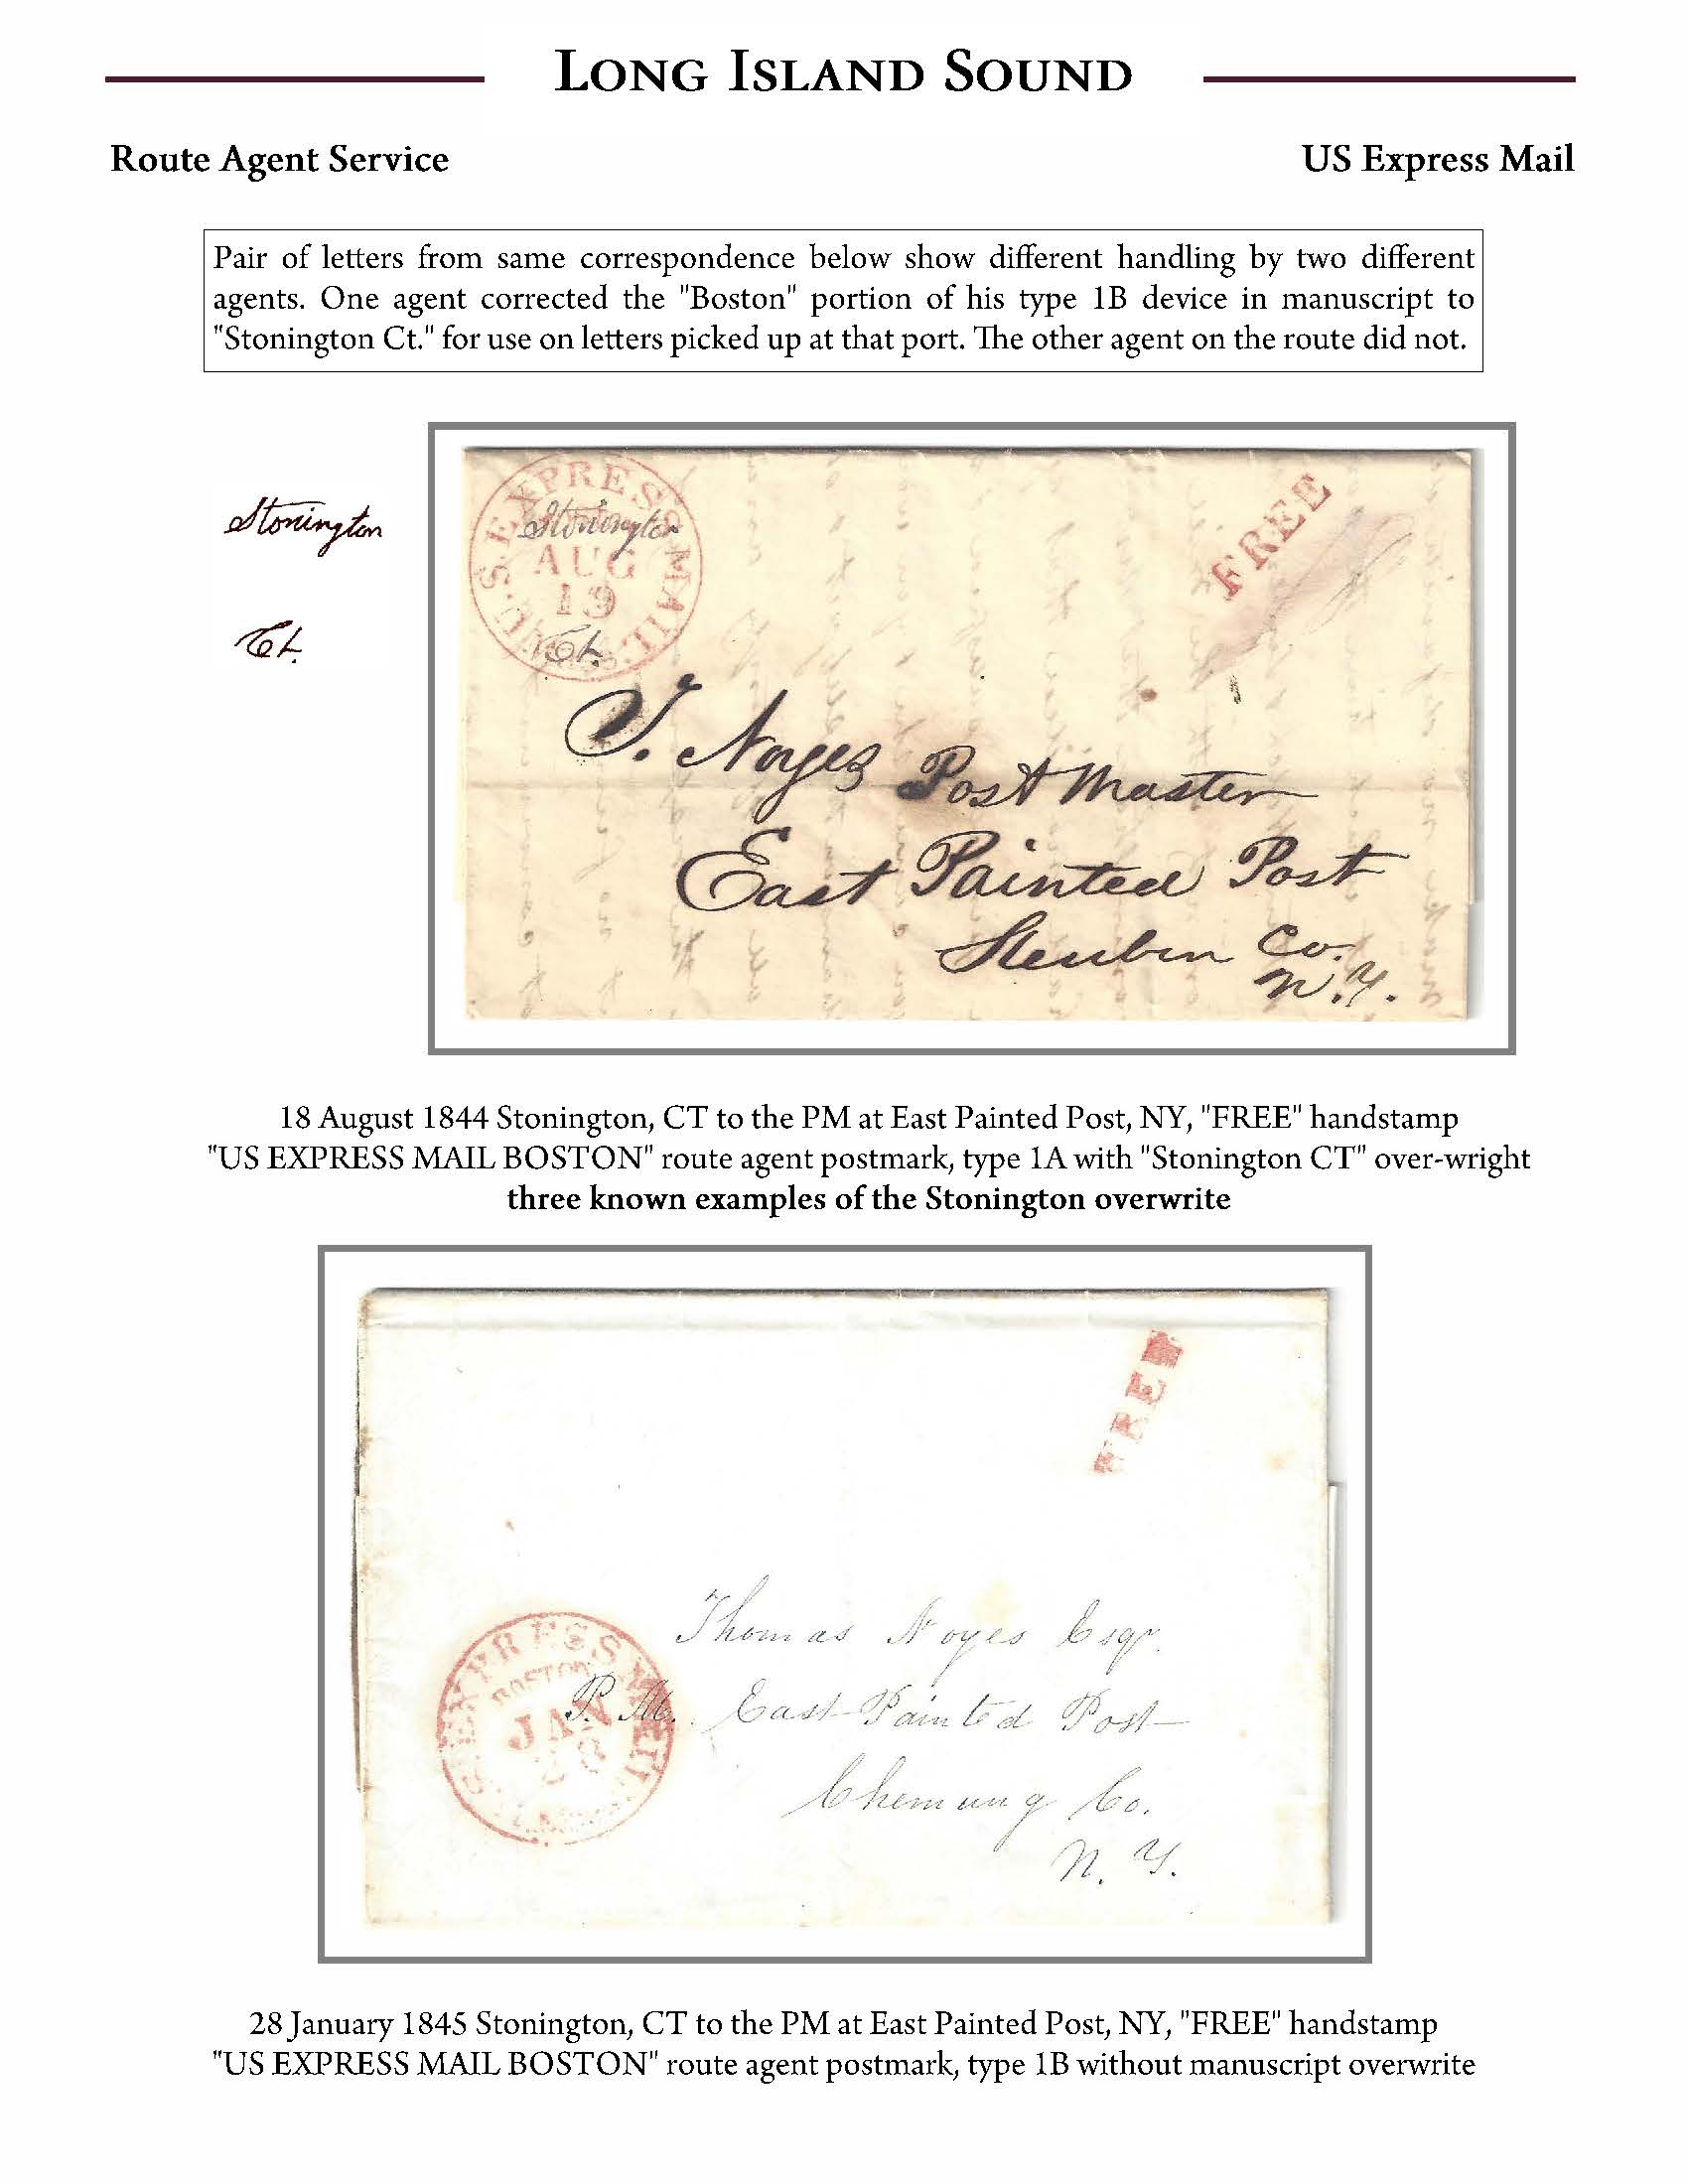 LONG ISLAND SOUND
Route Agent Service
US Express Mail
Pair of letters from same correspondence below show different handling by two different
agents. One agent corrected the "Boston" portion of his type 1B device in manuscript to
"Stonington Ct." for use on letters picked up at that port. The other agent on the route did not.
Stonington
Ct.
U.S. EXPRESS MAIL.
Stonington
AUG
19
Ct.
FREE
T. Noyes Post Master
East Painted Post
Steuben Co.
N.Y.
18 August 1844 Stonington, CT to the PM at East Painted Post, NY, "FREE" handstamp
"US EXPRESS MAIL BOSTON" route agent postmark, type 1A with "Stonington CT" over-wright
three known examples of the Stonington overwrite
FREE
S. EXPRESS MAIL
BOSTON
JAN
28
Thomas Noyes Esqr.
P. M. East Painted Post
Chemung Co.
N. Y.
28 January 1845 Stonington, CT to the PM at East Painted Post, NY, "FREE" handstamp
"US EXPRESS MAIL BOSTON" route agent postmark, type 1B without manuscript overwrite